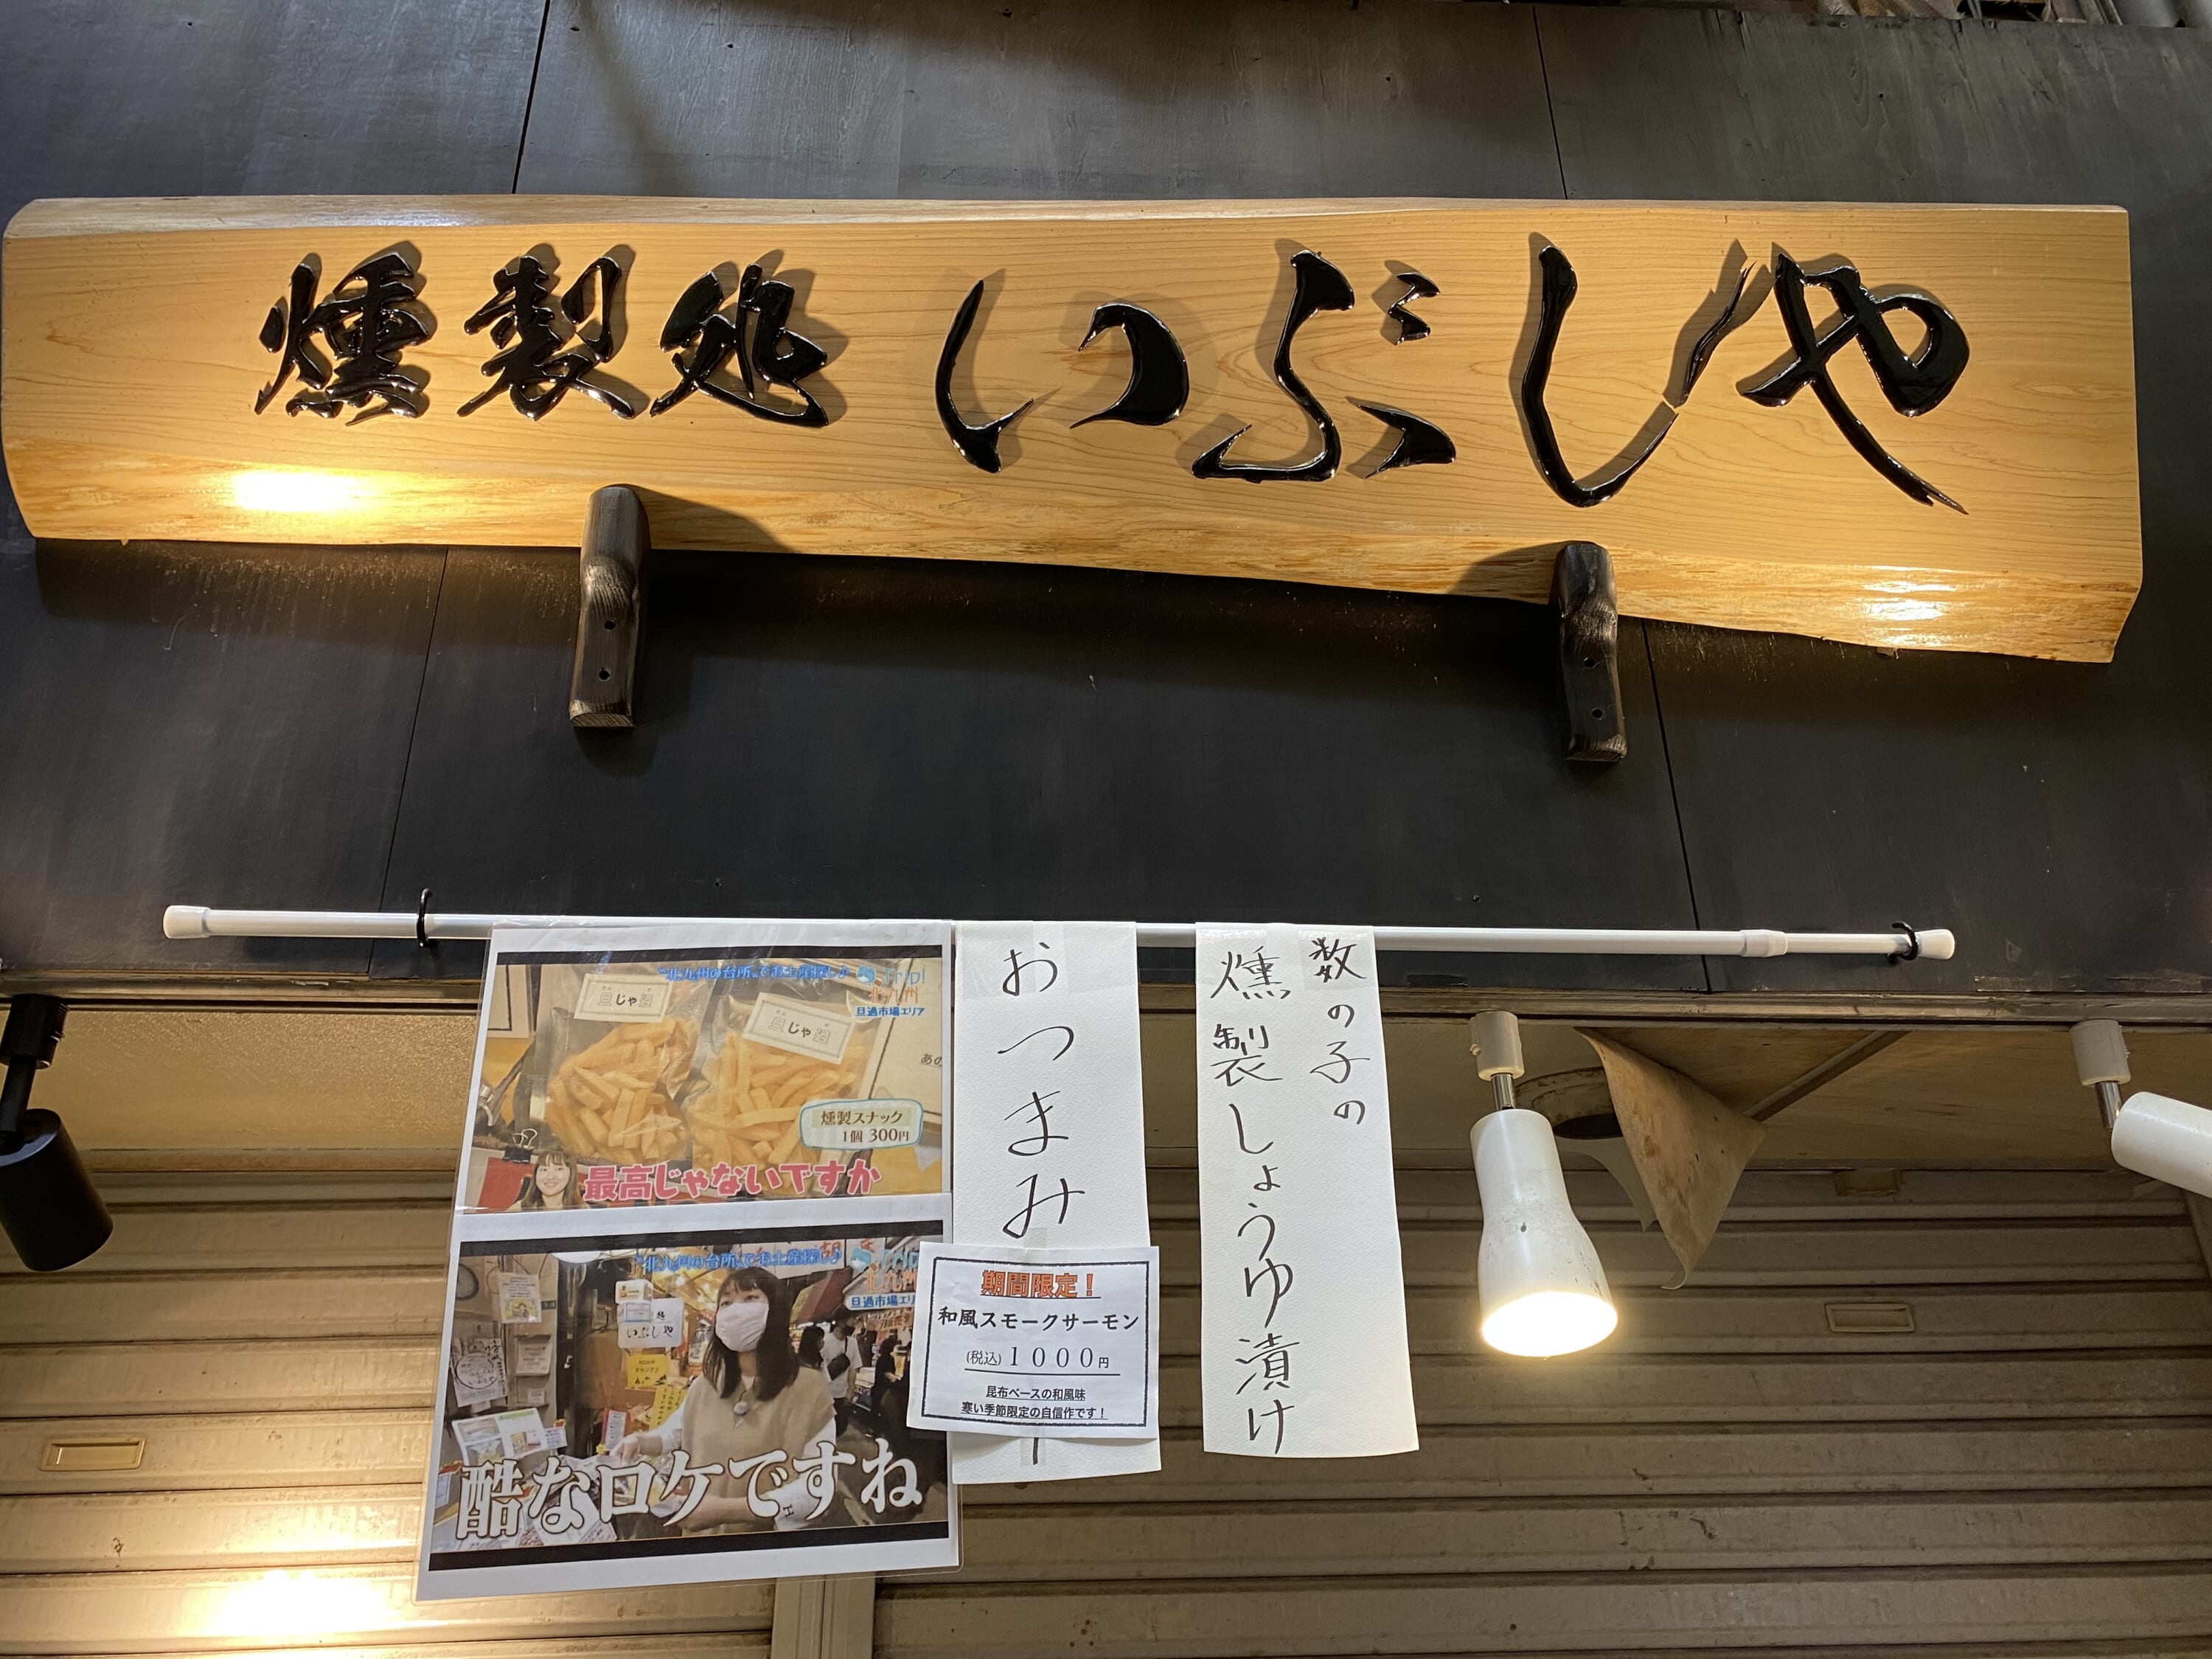 燻製処 いぶしや
“北九州の台所”でお土産探し♪
Trip!
北九州
旦過市場エリア
旦じゃ過
旦じゃ過
燻製スナック
1個 300円
最高じゃないですか
“北九州の台所”でお土産探し♪
旦過市場エリ
いぶしや
酷なロケですね
おつまみ
期間限定!
和風スモークサーモン
(税込)1000円
昆布ベースの和風味
寒い季節限定の自信作です!
数の子の
燻製しょうゆ漬け